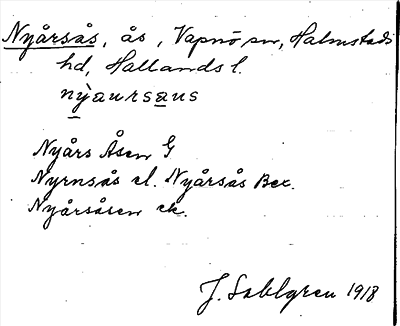 Nyårsås, ås, Vapnö sn, Halmstads
hd, Hallands l.
nỳaursaus
Nyårs Åsen G
Nyrnsås el. Nyårsås Bex.
Nyårsåsen ek.
J. Sahlgren 1918